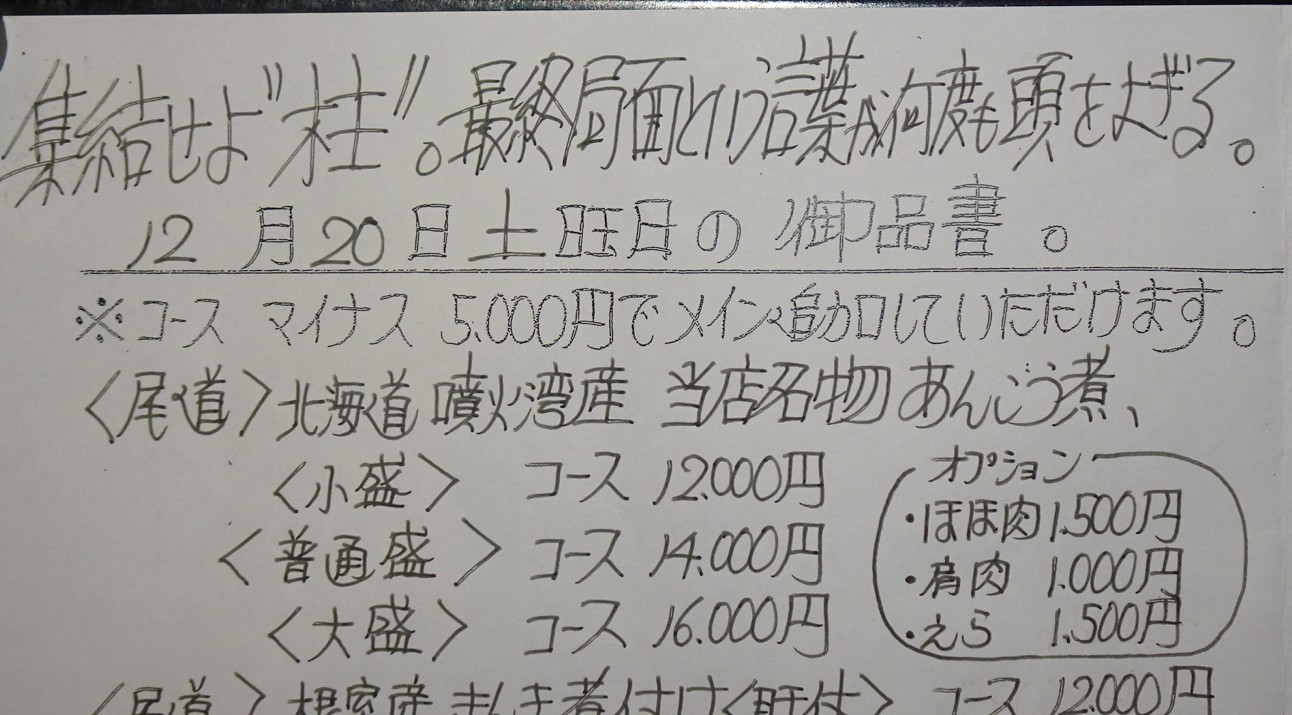 集結せよ"柱"。最終局面という言葉が何度も頭をよぎる。
12月20日土旺日の御品書。
※コース マイナス 5.000円でメイン追加していただけます。
〈尾道〉北海道 噴火湾産 当店名物 あんこう煮、
〈小盛〉 コース 12.000円
〈普通盛〉 コース 14.000円
〈大盛〉 コース 16.000円
オプション
・ほほ肉 1.500円
・肩肉 1.000円
・えら 1.500円
〈尾道〉根室産 きんき煮付け〈肝付〉 コース 12.000円